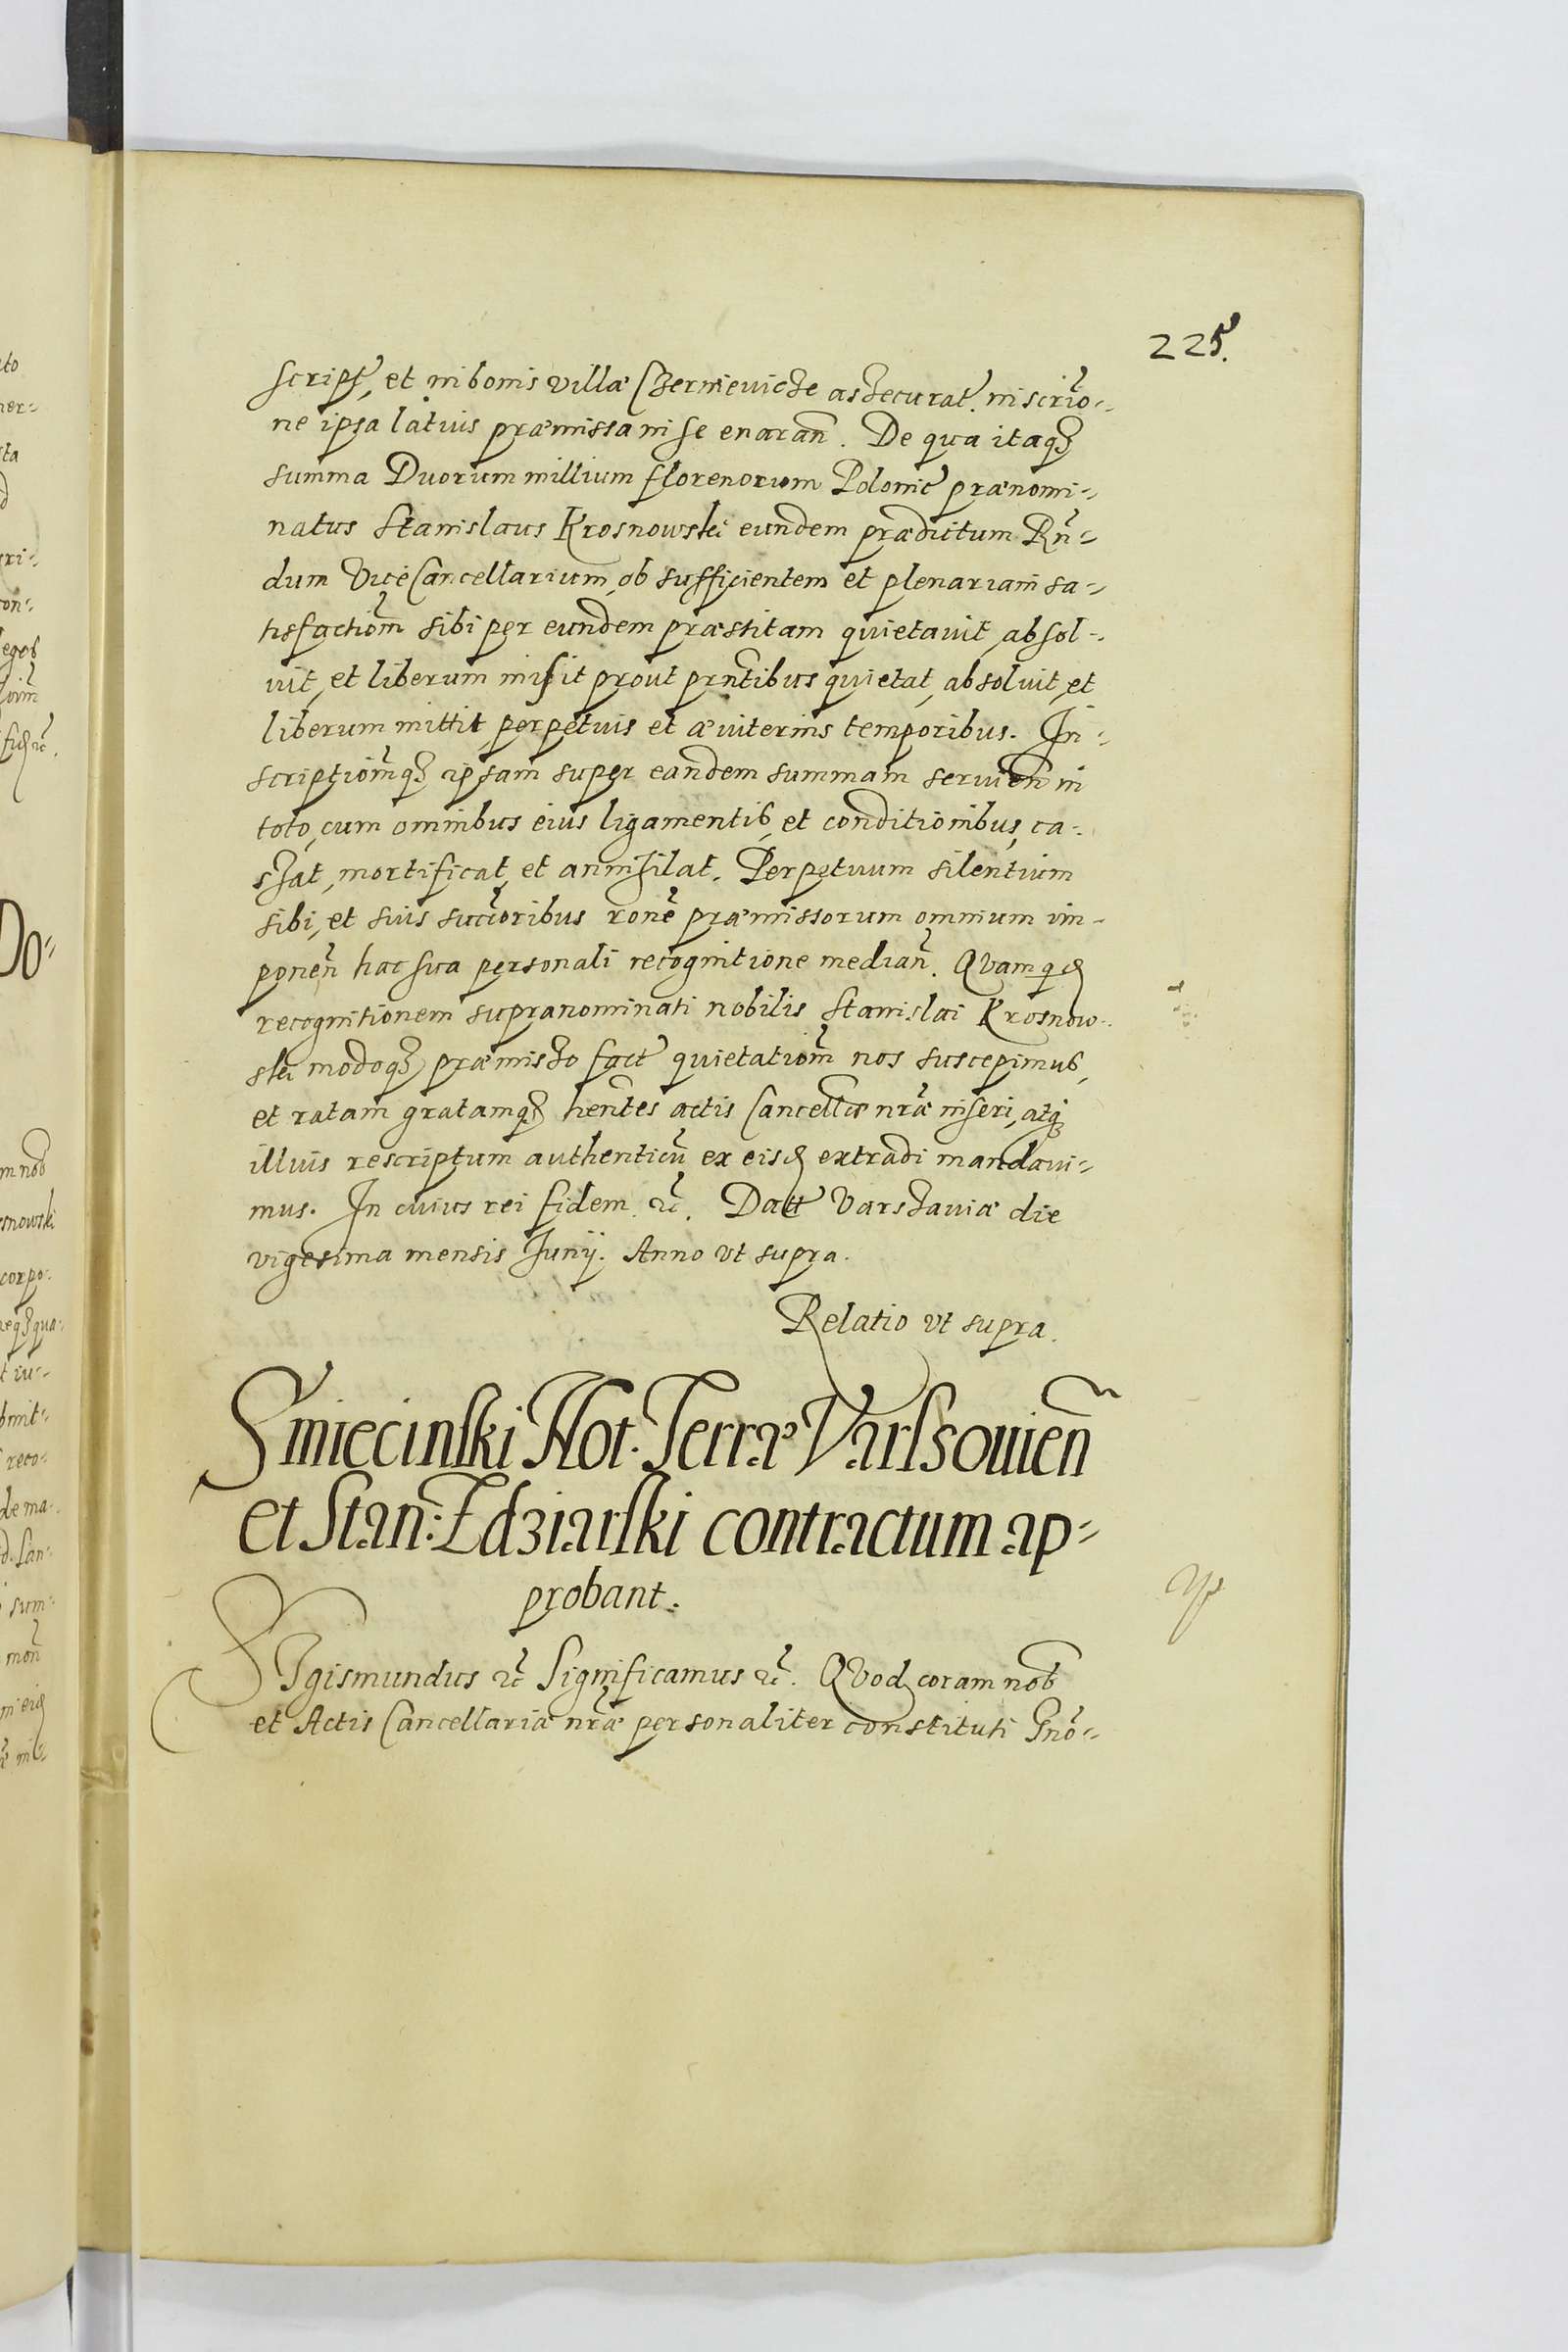 225.
script, et in bonis villæ Czernieuicze assecurat. inscriō-
ne ipsa latius præmissa in se enarañ. De qua itaq3
summa Duorum millium florenorum Polonic prænomi-
natus Stanislaus Krosnowski eundem prædictum Rñ-
dum ViceCancellarium, ob sufficientem et plenariam sa-
tisfactiom̃ sibi per eundem præstitam quietauit, absol-
uit, et liberum misit prout prñtibus quietat, absoluit, et
liberum mittit perpetuis et æuiternis temporibus. In-
scriptiom̃q3 ipsam super eandem summam seruieñ in
toto, cum omnibus eius ligamentis, et conditionibus, ca-
ssat, mortificat, et annihilat. Perpetuum silentium
sibi, et suis succōribus rōne præmissorum omnium im-
poneñ hac sua personali recognitione mediañ. Quamquid
recognitionem supranominati nobilis Stanislai Krosnow-
ski modoq3 præmisso fact quietatiom̃ nos suscepimus,
et ratam gratamq3 hentes actis Cancellæ nræ inseri, atq3
illius rescriptum authenticū ex eisd extradi mandaui-
mus. In cuius rei fidem etc. Datt Varssauiæ die
vigesima mensis Junij. Anno vt supra.
Relatio vt supra.
Smiecinski Not. Terræ Varssouień
et Stan: Zdziarski contractum ap-
probant.
SIgismundus etc Significamus etc. QVod coram nob
et Actis Cancellariæ nræ personaliter constituti Gnō-